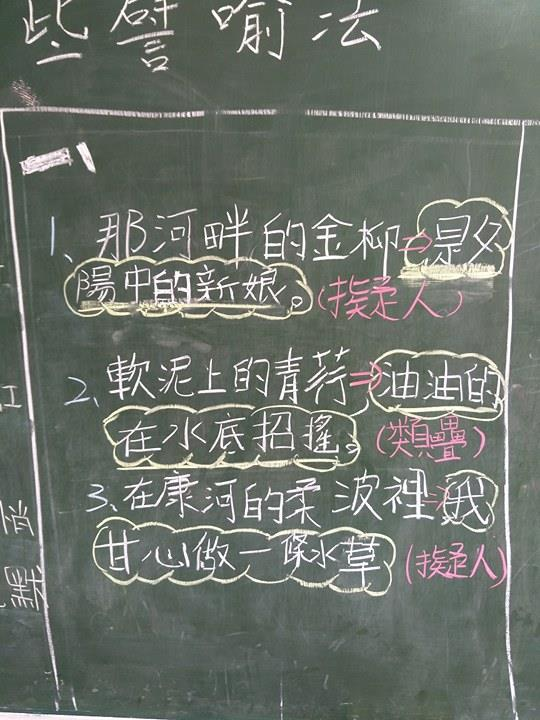 些譬喻法
一、
1、那河畔的金柳⇒是夕
陽中的新娘。(擬人)
2、軟泥上的青荇⇒油油的
在水底招搖。(類疊)
3、在康河的柔波裡⇒我
甘心做一條水草(擬人)
悄
默